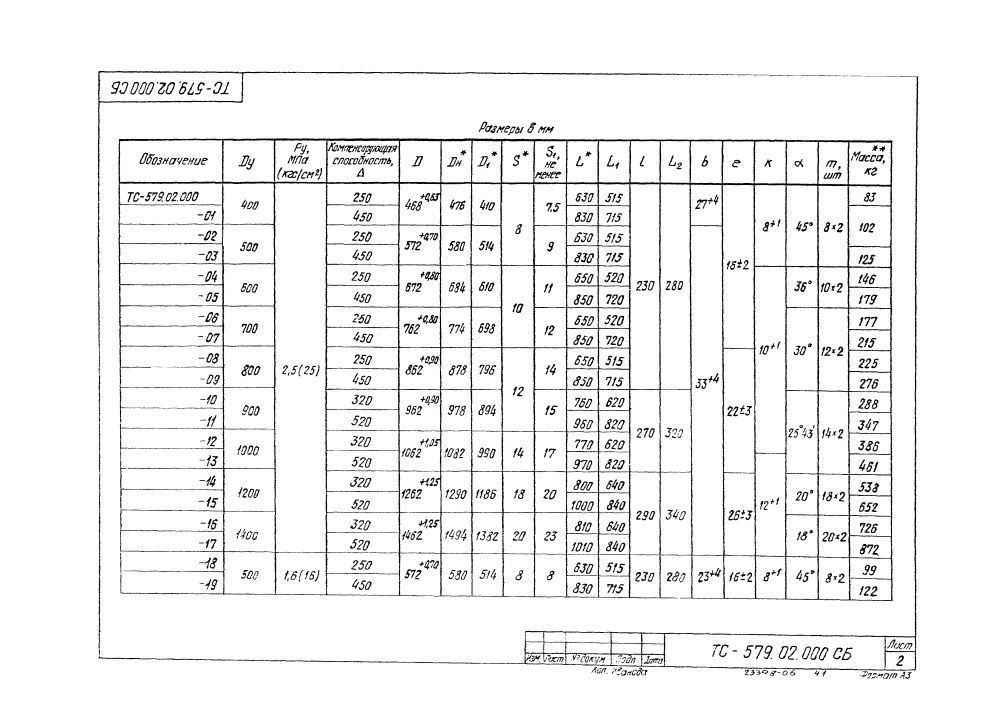 ТС-579.02.000 СБ
Размеры в мм
Обозначение | Dу | Pу, МПа (кгс/см²) | Компенсирующая способность, Δ | D | Dн* | D₁* | S* | S₁, не менее | L* | L₁ | l | L₂ | b | e | к | α | m, шт | Масса,** кг
ТС-579.02.000 | 400 | 2,5(25) | 250 | 468 +0,63 | 476 | 410 | 8 | 7,5 | 630 | 515 | 230 | 280 | 27+4 | 16±2 | 8+1 | 45° | 8×2 | 83
-01 | 450 | 830 | 715 | 102
-02 | 500 | 250 | 572 +0,70 | 580 | 514 | 9 | 630 | 515 | 33+4
-03 | 450 | 830 | 715 | 125
-04 | 600 | 250 | 672 +0,80 | 684 | 610 | 10 | 11 | 650 | 520 | 10+1 | 36° | 10×2 | 146
-05 | 450 | 850 | 720 | 179
-06 | 700 | 250 | 762 +0,80 | 774 | 698 | 12 | 650 | 520 | 30° | 12×2 | 177
-07 | 450 | 850 | 720 | 215
-08 | 800 | 250 | 862 +0,90 | 878 | 796 | 12 | 14 | 650 | 515 | 22±3 | 225
-09 | 450 | 850 | 715 | 276
-10 | 900 | 320 | 962 +0,90 | 978 | 894 | 15 | 760 | 620 | 270 | 320 | 25°43′ | 14×2 | 288
-11 | 520 | 960 | 820 | 347
-12 | 1000 | 320 | 1062 +1,05 | 1082 | 990 | 14 | 17 | 770 | 620 | 386
-13 | 520 | 970 | 820 | 12+1 | 461
-14 | 1200 | 320 | 1262 +1,25 | 1290 | 1186 | 18 | 20 | 800 | 640 | 290 | 340 | 26±3 | 20° | 18×2 | 538
-15 | 520 | 1000 | 840 | 652
-16 | 1400 | 320 | 1462 +1,25 | 1494 | 1382 | 20 | 23 | 810 | 640 | 18° | 20×2 | 726
-17 | 520 | 1010 | 840 | 872
-18 | 500 | 1,6(16) | 250 | 572 +0,70 | 580 | 514 | 8 | 8 | 630 | 515 | 230 | 280 | 23+4 | 16±2 | 8+1 | 45° | 8×2 | 99
-19 | 450 | 830 | 715 | 122
Изм Лист № докум Подп Дата
ТС - 579.02.000 СБ
Лист
2
Коп. Иванова
23308-06 41
Формат А3